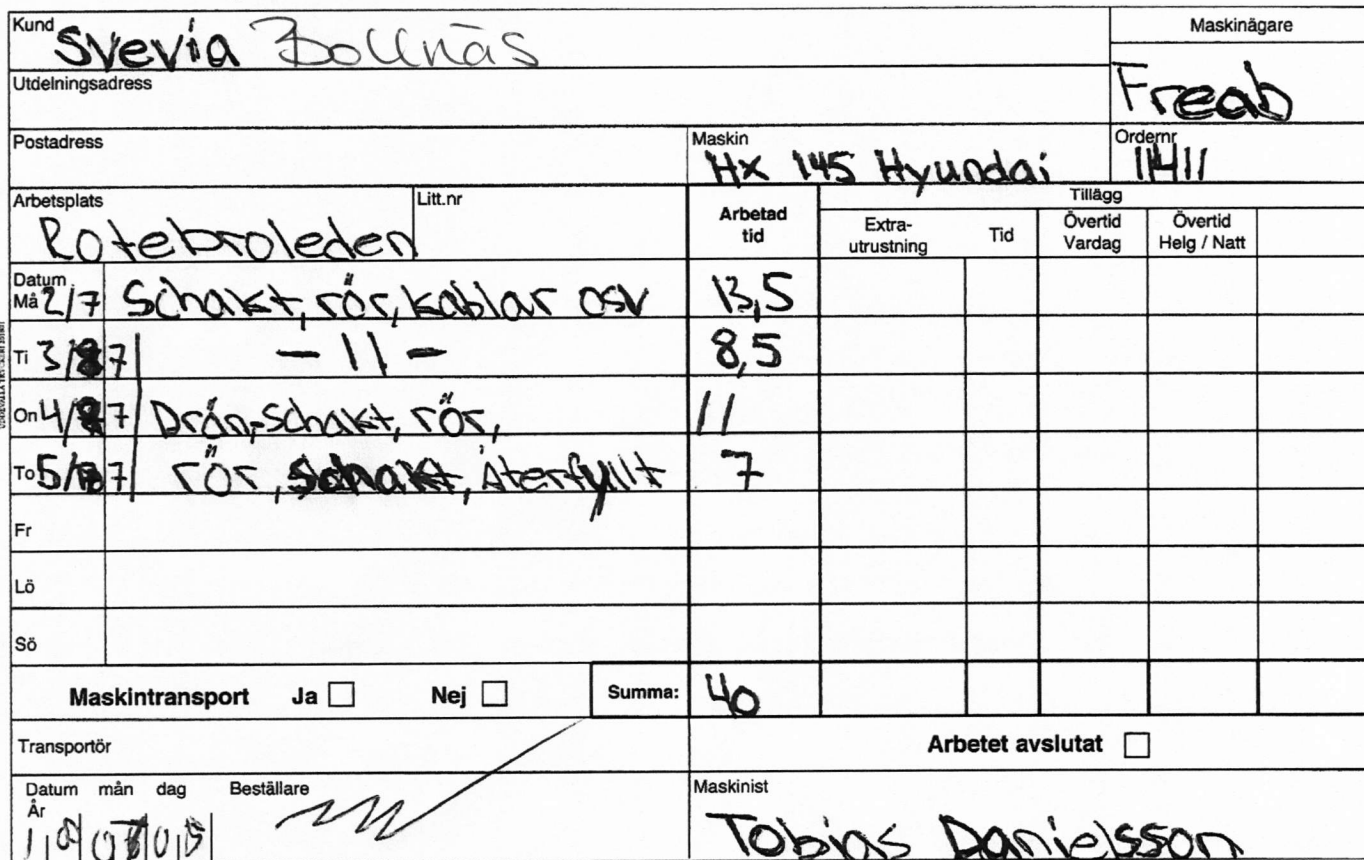 Kund Svevia Bollnäs
Maskinägare
Utdelningsadress
Freab
Postadress
Maskin Hx 145 Hyundai
Ordernr 11411
Arbetsplats Rotebroleden
Litt.nr
Arbetad tid
Tillägg
Extra-utrustning
Tid
Övertid Vardag
Övertid Helg / Natt
Datum
Må 2/7 Schakt, rör, kablar osv 13,5
Ti 3/7 – 11 – 8,5
On 4/7 Drän-schakt, rör, 11
To 5/7 rör, schakt, Återfyllt 7
Fr
Lö
Sö
Maskintransport Ja Nej Summa: 40
Transportör
Arbetet avslutat
Datum mån dag
År
Beställare
Maskinist
18 07 05
Tobias Danielsson